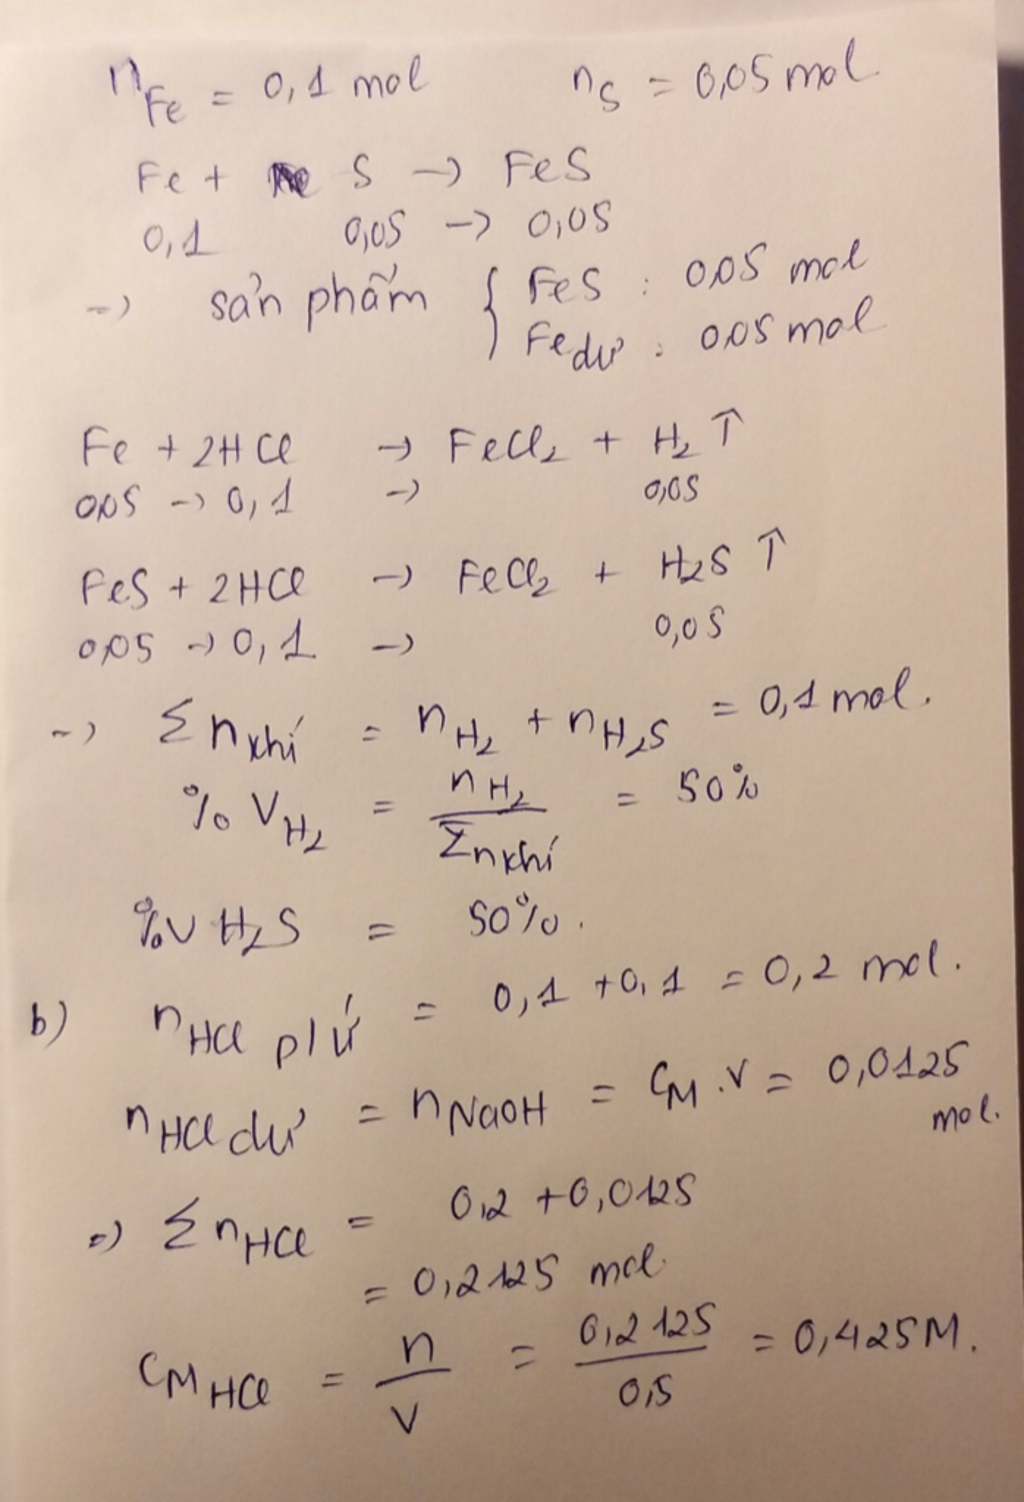 nFe = 0,1 mol nS = 0,05 mol
Fe + S → FeS
0,1 0,05 → 0,05
→ sản phẩm { FeS : 0,05 mol
Fe dư : 0,05 mol
Fe + 2HCl → FeCl₂ + H₂ ↑
0,05 → 0,1 → 0,05
FeS + 2HCl → FeCl₂ + H₂S ↑
0,05 → 0,1 → 0,05
→ Σ n khí = nH₂ + nH₂S = 0,1 mol.
% VH₂ = nH₂ / Σn khí = 50%
%V H₂S = 50%.
b) nHCl p/ứ = 0,1 + 0,1 = 0,2 mol.
nHCl dư = nNaOH = CM . V = 0,0125 mol.
=) Σ nHCl = 0,2 + 0,0125
= 0,2125 mol
CM HCl = n / V = 0,2125 / 0,5 = 0,425M.